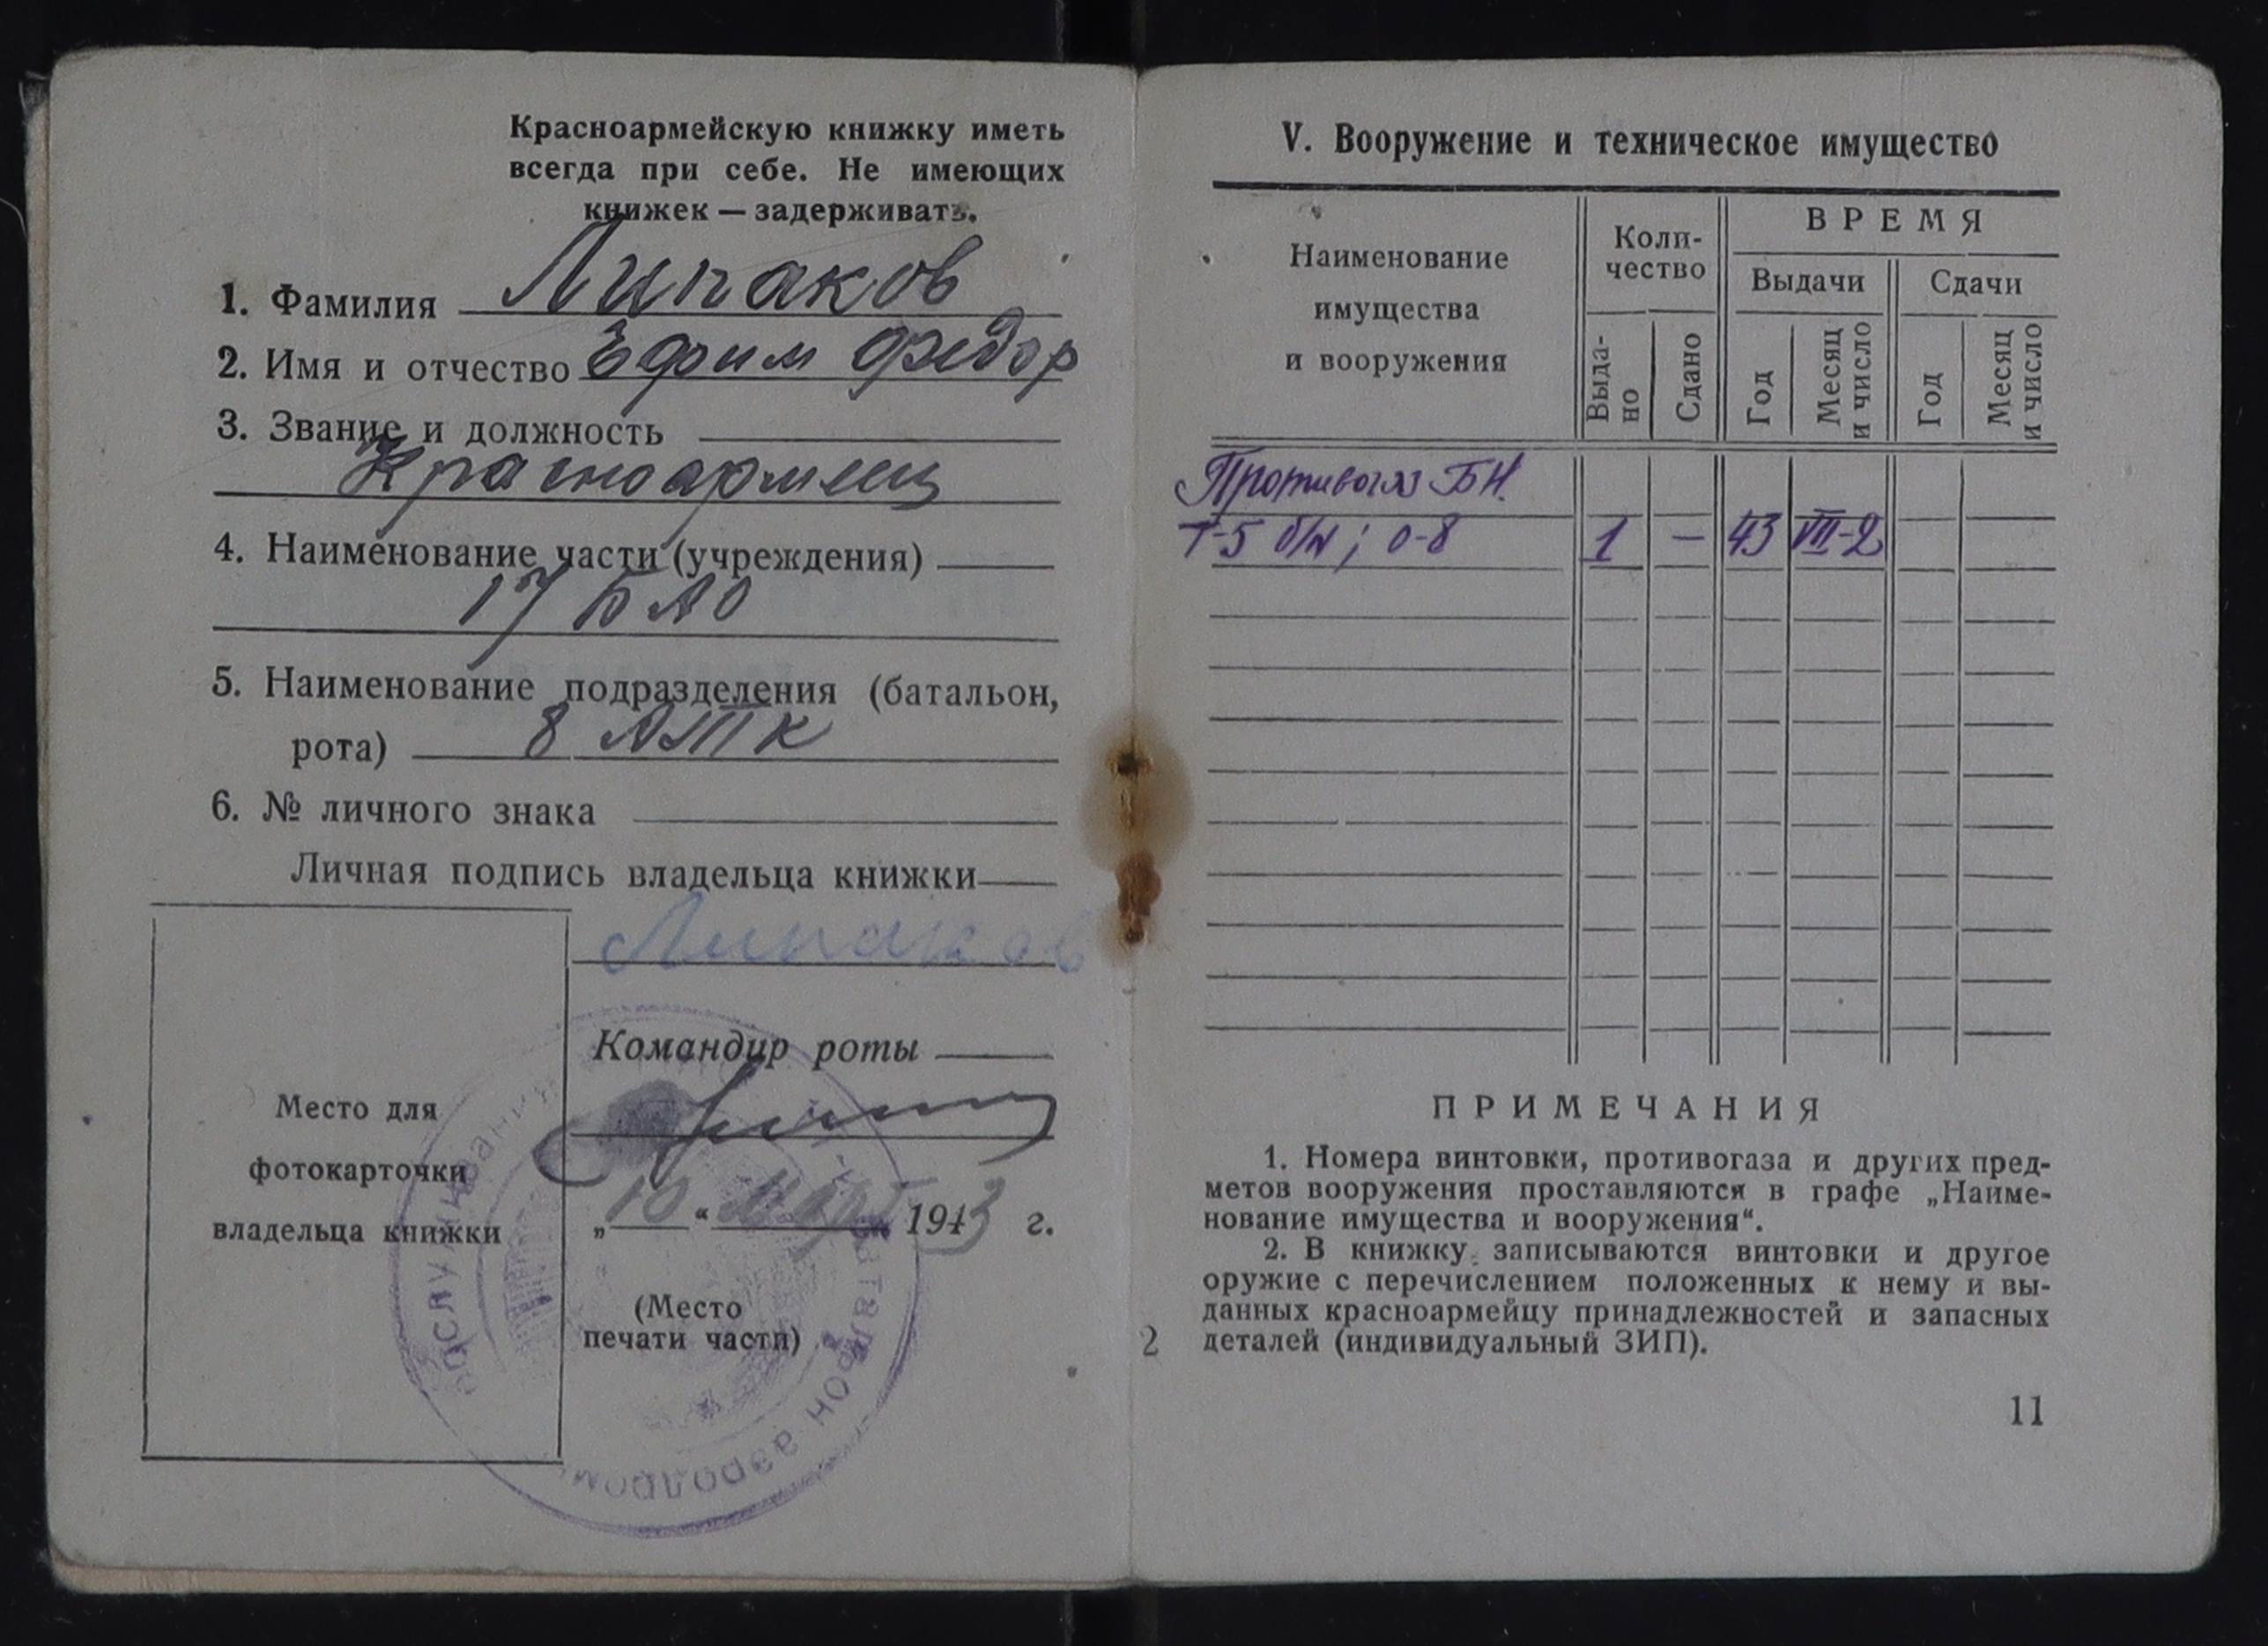 Красноармейскую книжку иметь
всегда при себе. Не имеющих
книжек — задерживать.
1. Фамилия Липаков
2. Имя и отчество Ефим Федор
3. Звание и должность
Красноармеец
4. Наименование части (учреждения)
17 БАО
5. Наименование подразделения (батальон,
рота) 8 АТК
6. № личного знака
Личная подпись владельца книжки
Липаков
Командир роты
Место для
фотокарточки
владельца книжки
„10“ Март 1943 г.
(Место
печати части)
V. Вооружение и техническое имущество
Наименование
имущества
и вооружения
Коли-
чество
ВРЕМЯ
Выдачи
Сдачи
Выда-
но
Сдано
Год
Месяц
и число
Год
Месяц
и число
Противогаз БН.
Т-5 б/н; 0-8 1 — 43 VIII-2
ПРИМЕЧАНИЯ
1. Номера винтовки, противогаза и других пред-
метов вооружения проставляются в графе „Наиме-
нование имущества и вооружения“.
2. В книжку записываются винтовки и другое
оружие с перечислением положенных к нему и вы-
данных красноармейцу принадлежностей и запасных
деталей (индивидуальный ЗИП).
2
11